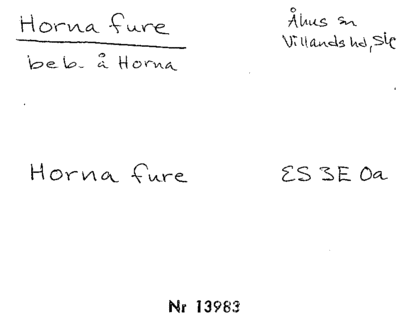 Horna fure
Åhus sn
beb. å Horna
Villands hd, Sk
Horna fure
ES 3E 0a
Nr 13983